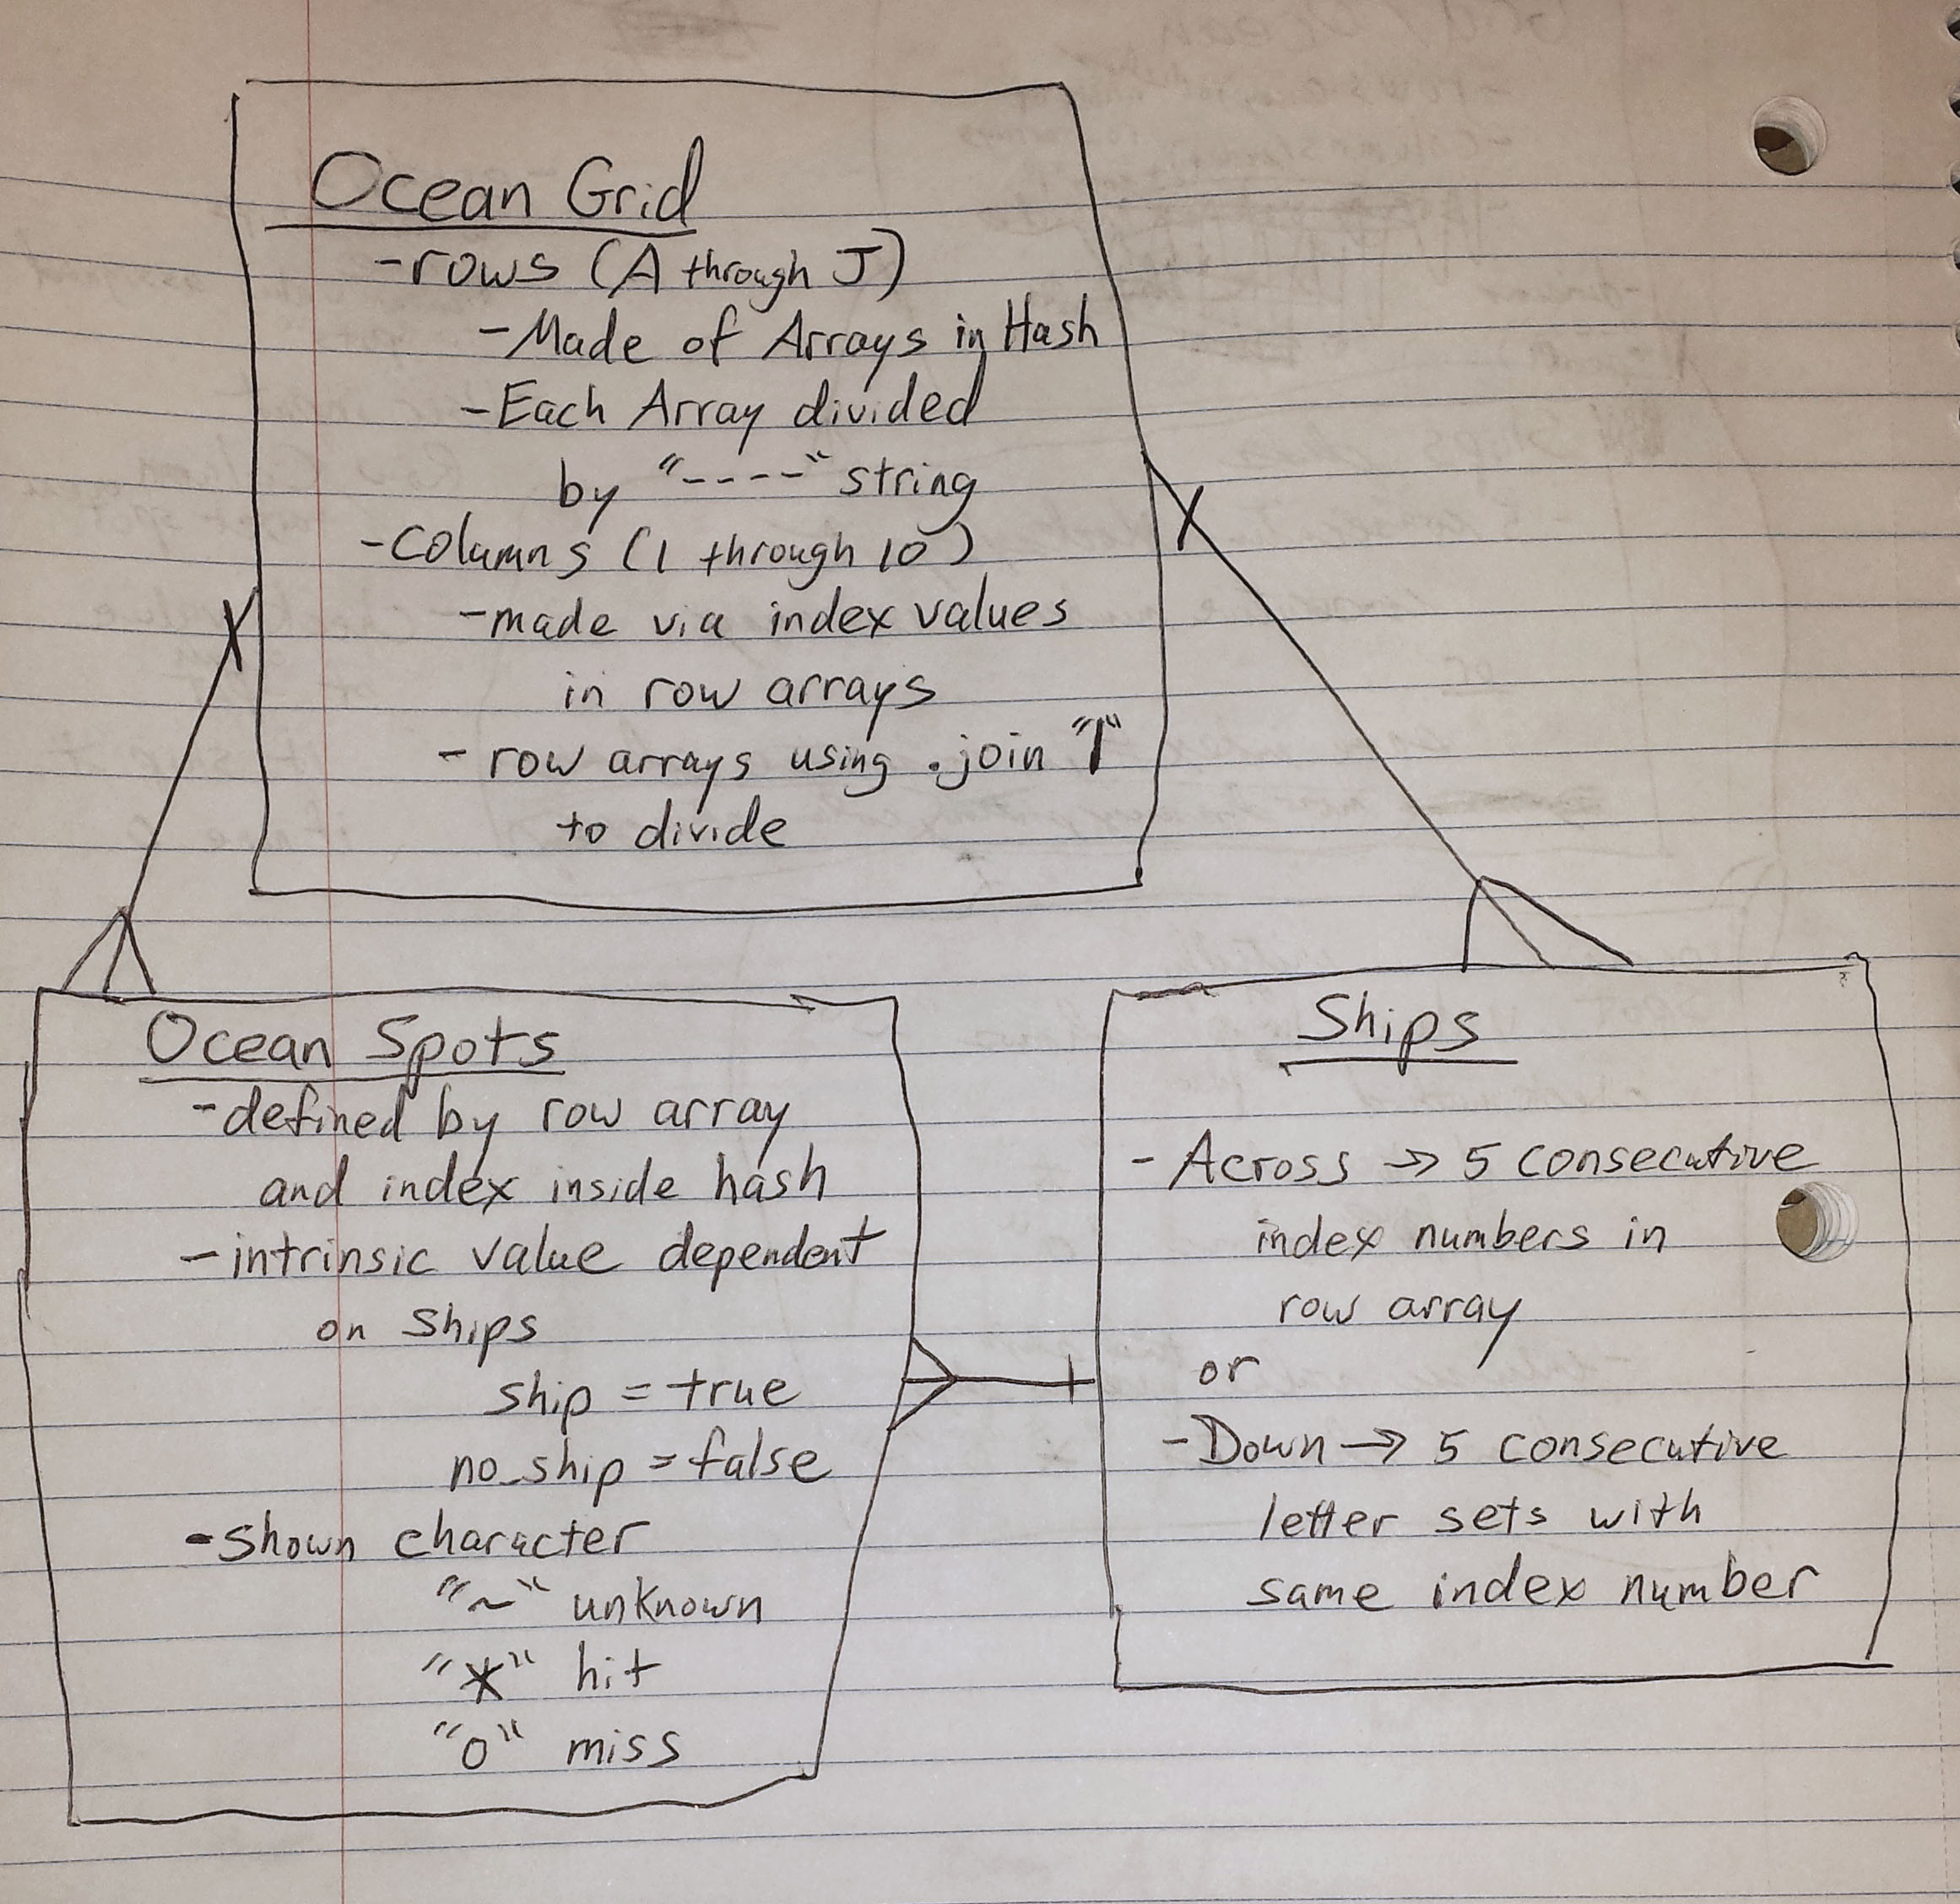 Ocean Grid
-rows (A through J)
-Made of Arrays in Hash
-Each Array divided
by "----" string
-Columns (1 through 10)
-made via index values
in row arrays
- row arrays using .join "|"
to divide
Ocean Spots
-defined by row array
and index inside hash
-intrinsic value dependent
on ships
ship = true
no_ship = false
-shown character
"~" unknown
"*" hit
"O" miss
Ships
- Across → 5 consecutive
index numbers in
row array
or
-Down → 5 consecutive
letter sets with
same index number